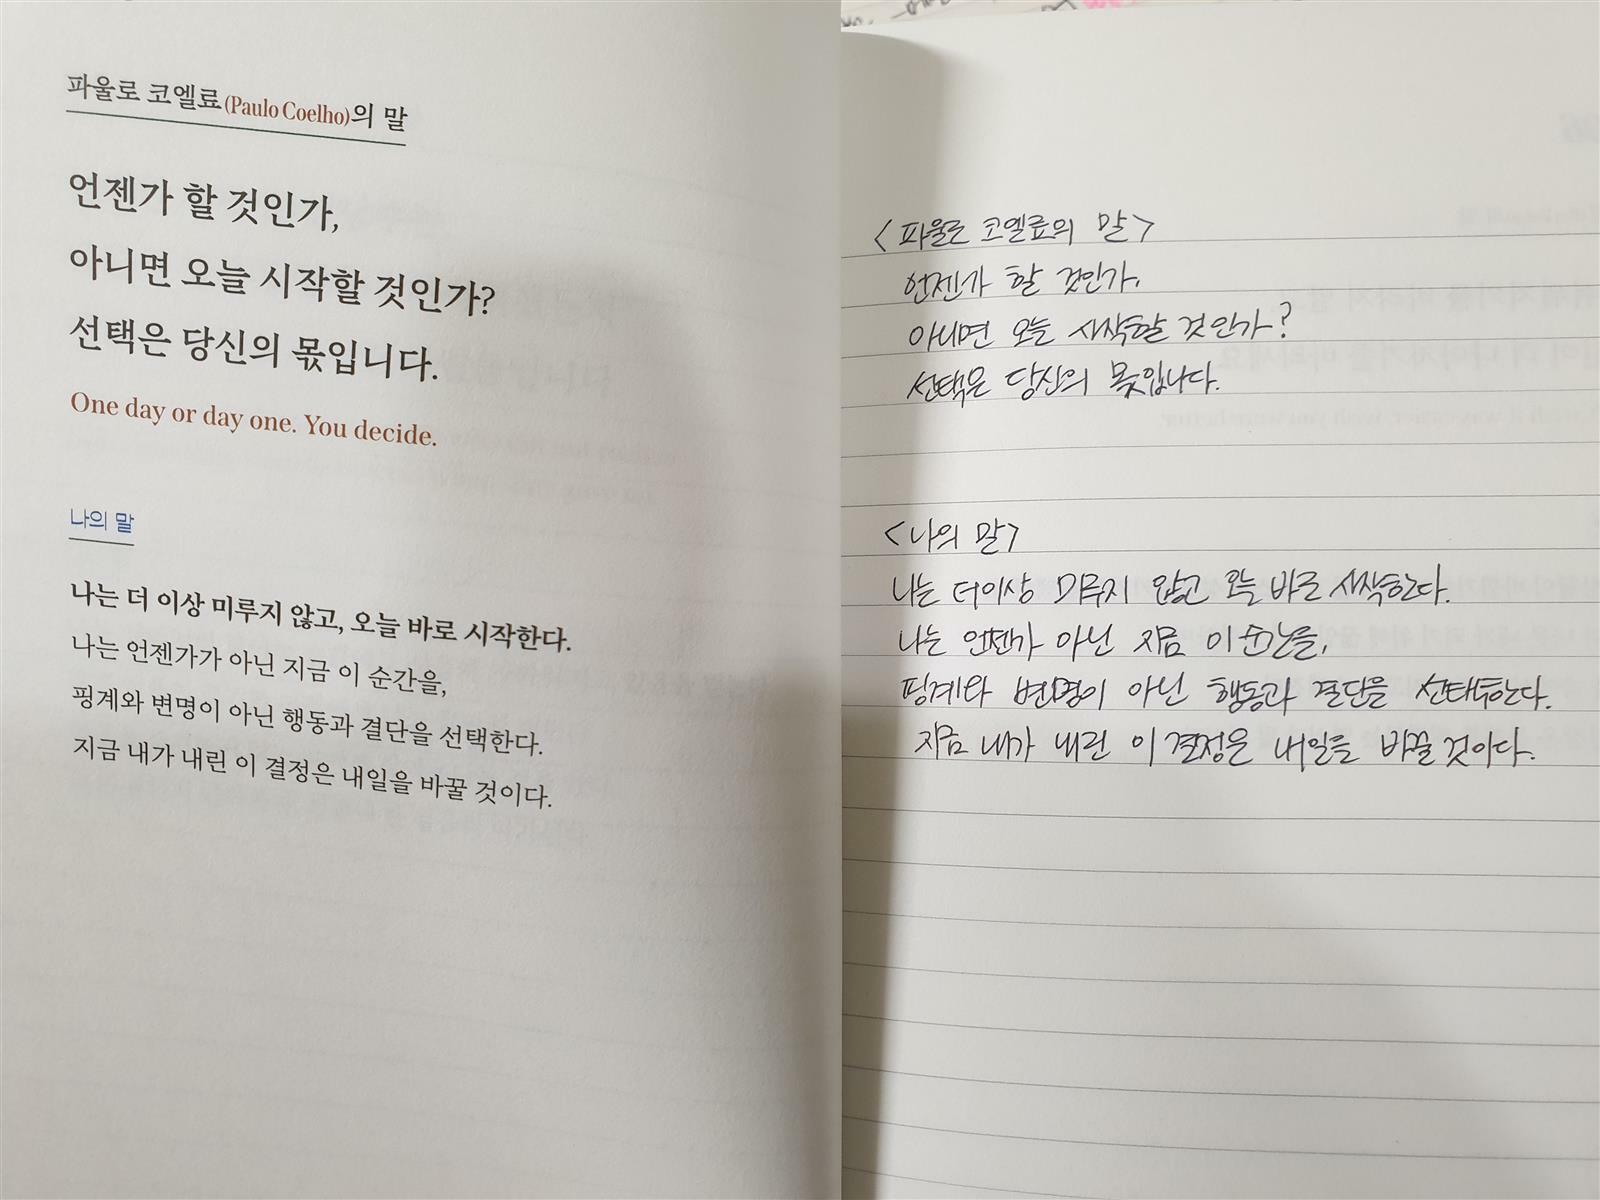 파울로 코엘료(Paulo Coelho)의 말
언젠가 할 것인가,
아니면 오늘 시작할 것인가?
선택은 당신의 몫입니다.
One day or day one. You decide.
나의 말
나는 더 이상 미루지 않고, 오늘 바로 시작한다.
나는 언젠가가 아닌 지금 이 순간을,
핑계와 변명이 아닌 행동과 결단을 선택한다.
지금 내가 내린 이 결정은 내일을 바꿀 것이다.
<파울로 코엘료의 말>
언젠가 할 것인가,
아니면 오늘 시작할 것인가?
선택은 당신의 몫입니다.
<나의 말>
나는 더이상 미루지 않고 오늘 바로 시작한다.
나는 언젠가 아닌 지금 이 순간을,
핑계와 변명이 아닌 행동과 결단을 선택한다.
지금 내가 내린 이 결정은 내일을 바꿀 것이다.